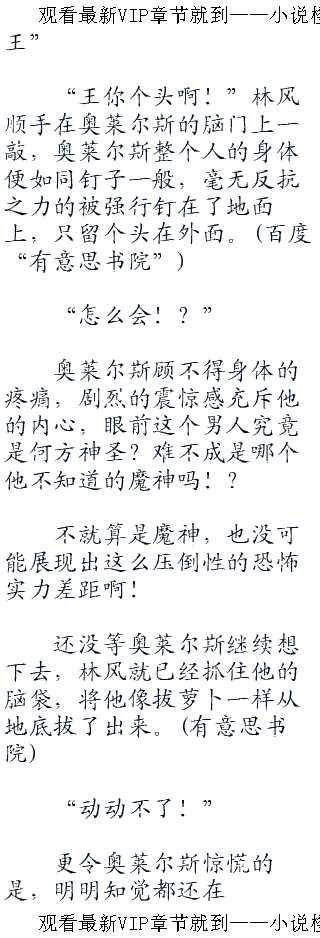 观看最新VIP章节就到——小说楼
王”
“王你个头啊！”林风
顺手在奥莱尔斯的脑门上一
敲，奥莱尔斯整个人的身体
便如同钉子一般，毫无反抗
之力的被强行钉在了地面
上，只留个头在外面。(百度
“有意思书院”)
“怎么会！？”
奥莱尔斯顾不得身体的
疼痛，剧烈的震惊感充斥他
的内心，眼前这个男人究竟
是何方神圣？难不成是哪个
他不知道的魔神吗！？
不就算是魔神，也没可
能展现出这么压倒性的恐怖
实力差距啊！
还没等奥莱尔斯继续想
下去，林风就已经抓住他的
脑袋，将他像拔萝卜一样从
地底拔了出来。(有意思书
院)
“动动不了！”
更令奥莱尔斯惊慌的
是，明明知觉都还在
观看最新VIP章节就到——小说楼